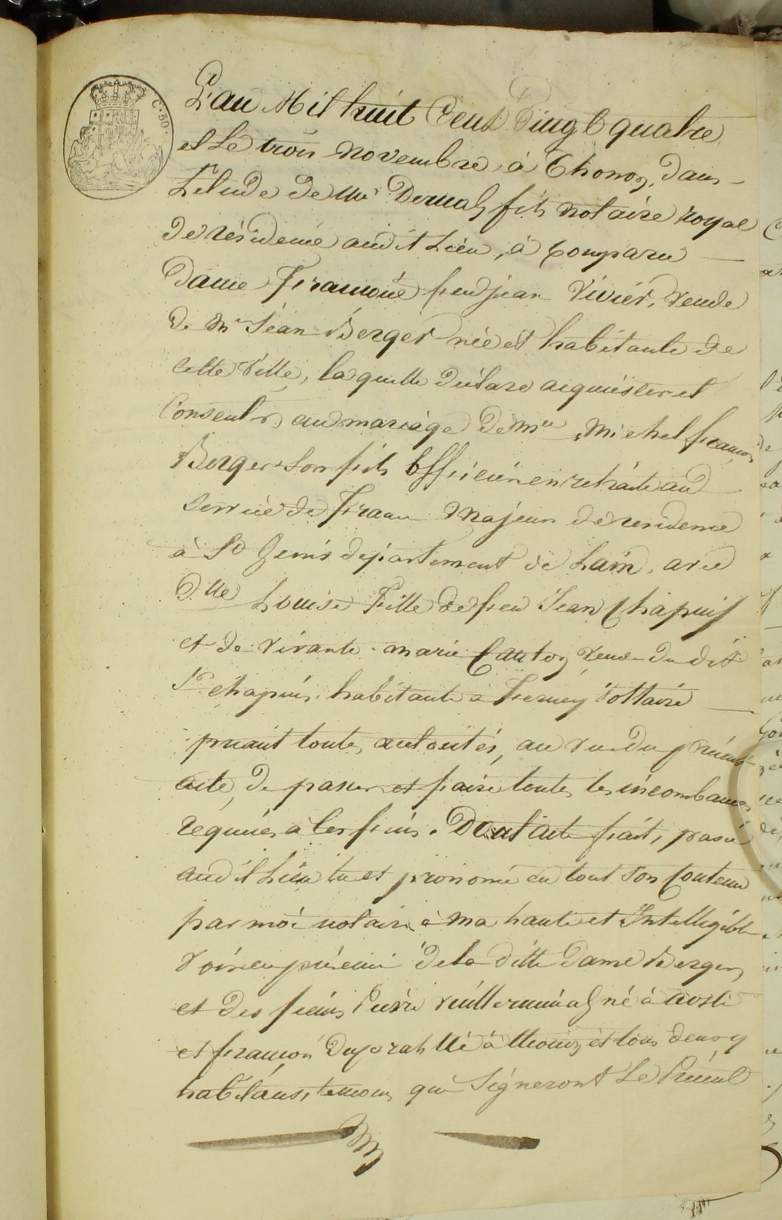 C. 80.
L'an Mil huit Cent Vingt quatre
et Le trois novembre, à Thonon, dans
L'etude de Me fils notaire royal
de résidence audit Lieu, à Comparu
Dame Francoise feu jean Vivier, veuve
de Mr Jean Berger née et habitante de
cette Ville, la quelle déclare acquiescer et
Consentir au mariage de Mr Michel francois
Berger son fils Officier en retraite au
service de France Majeur de residence
à St Genis département de Lain, avec
Dlle Louise Fille de feu Jean Chapuis
et de vivante marie veuve du dit
Sr chapuis habitante à Ferney Voltaire
priant toutes autorités, au vu du présent
acte, de passer et faire toutes les incombances
requises à ces fins. Dont acte fait, passé
audit Lieu lu et prononcé en tout son Contenu
par moi notaire à ma haute et Intelligible
voix en présence de la ditte Dame Berger
et des sieurs Pierre né à
et francois né à et tous deux y
habitans, temoins qui Signeront Le Présent